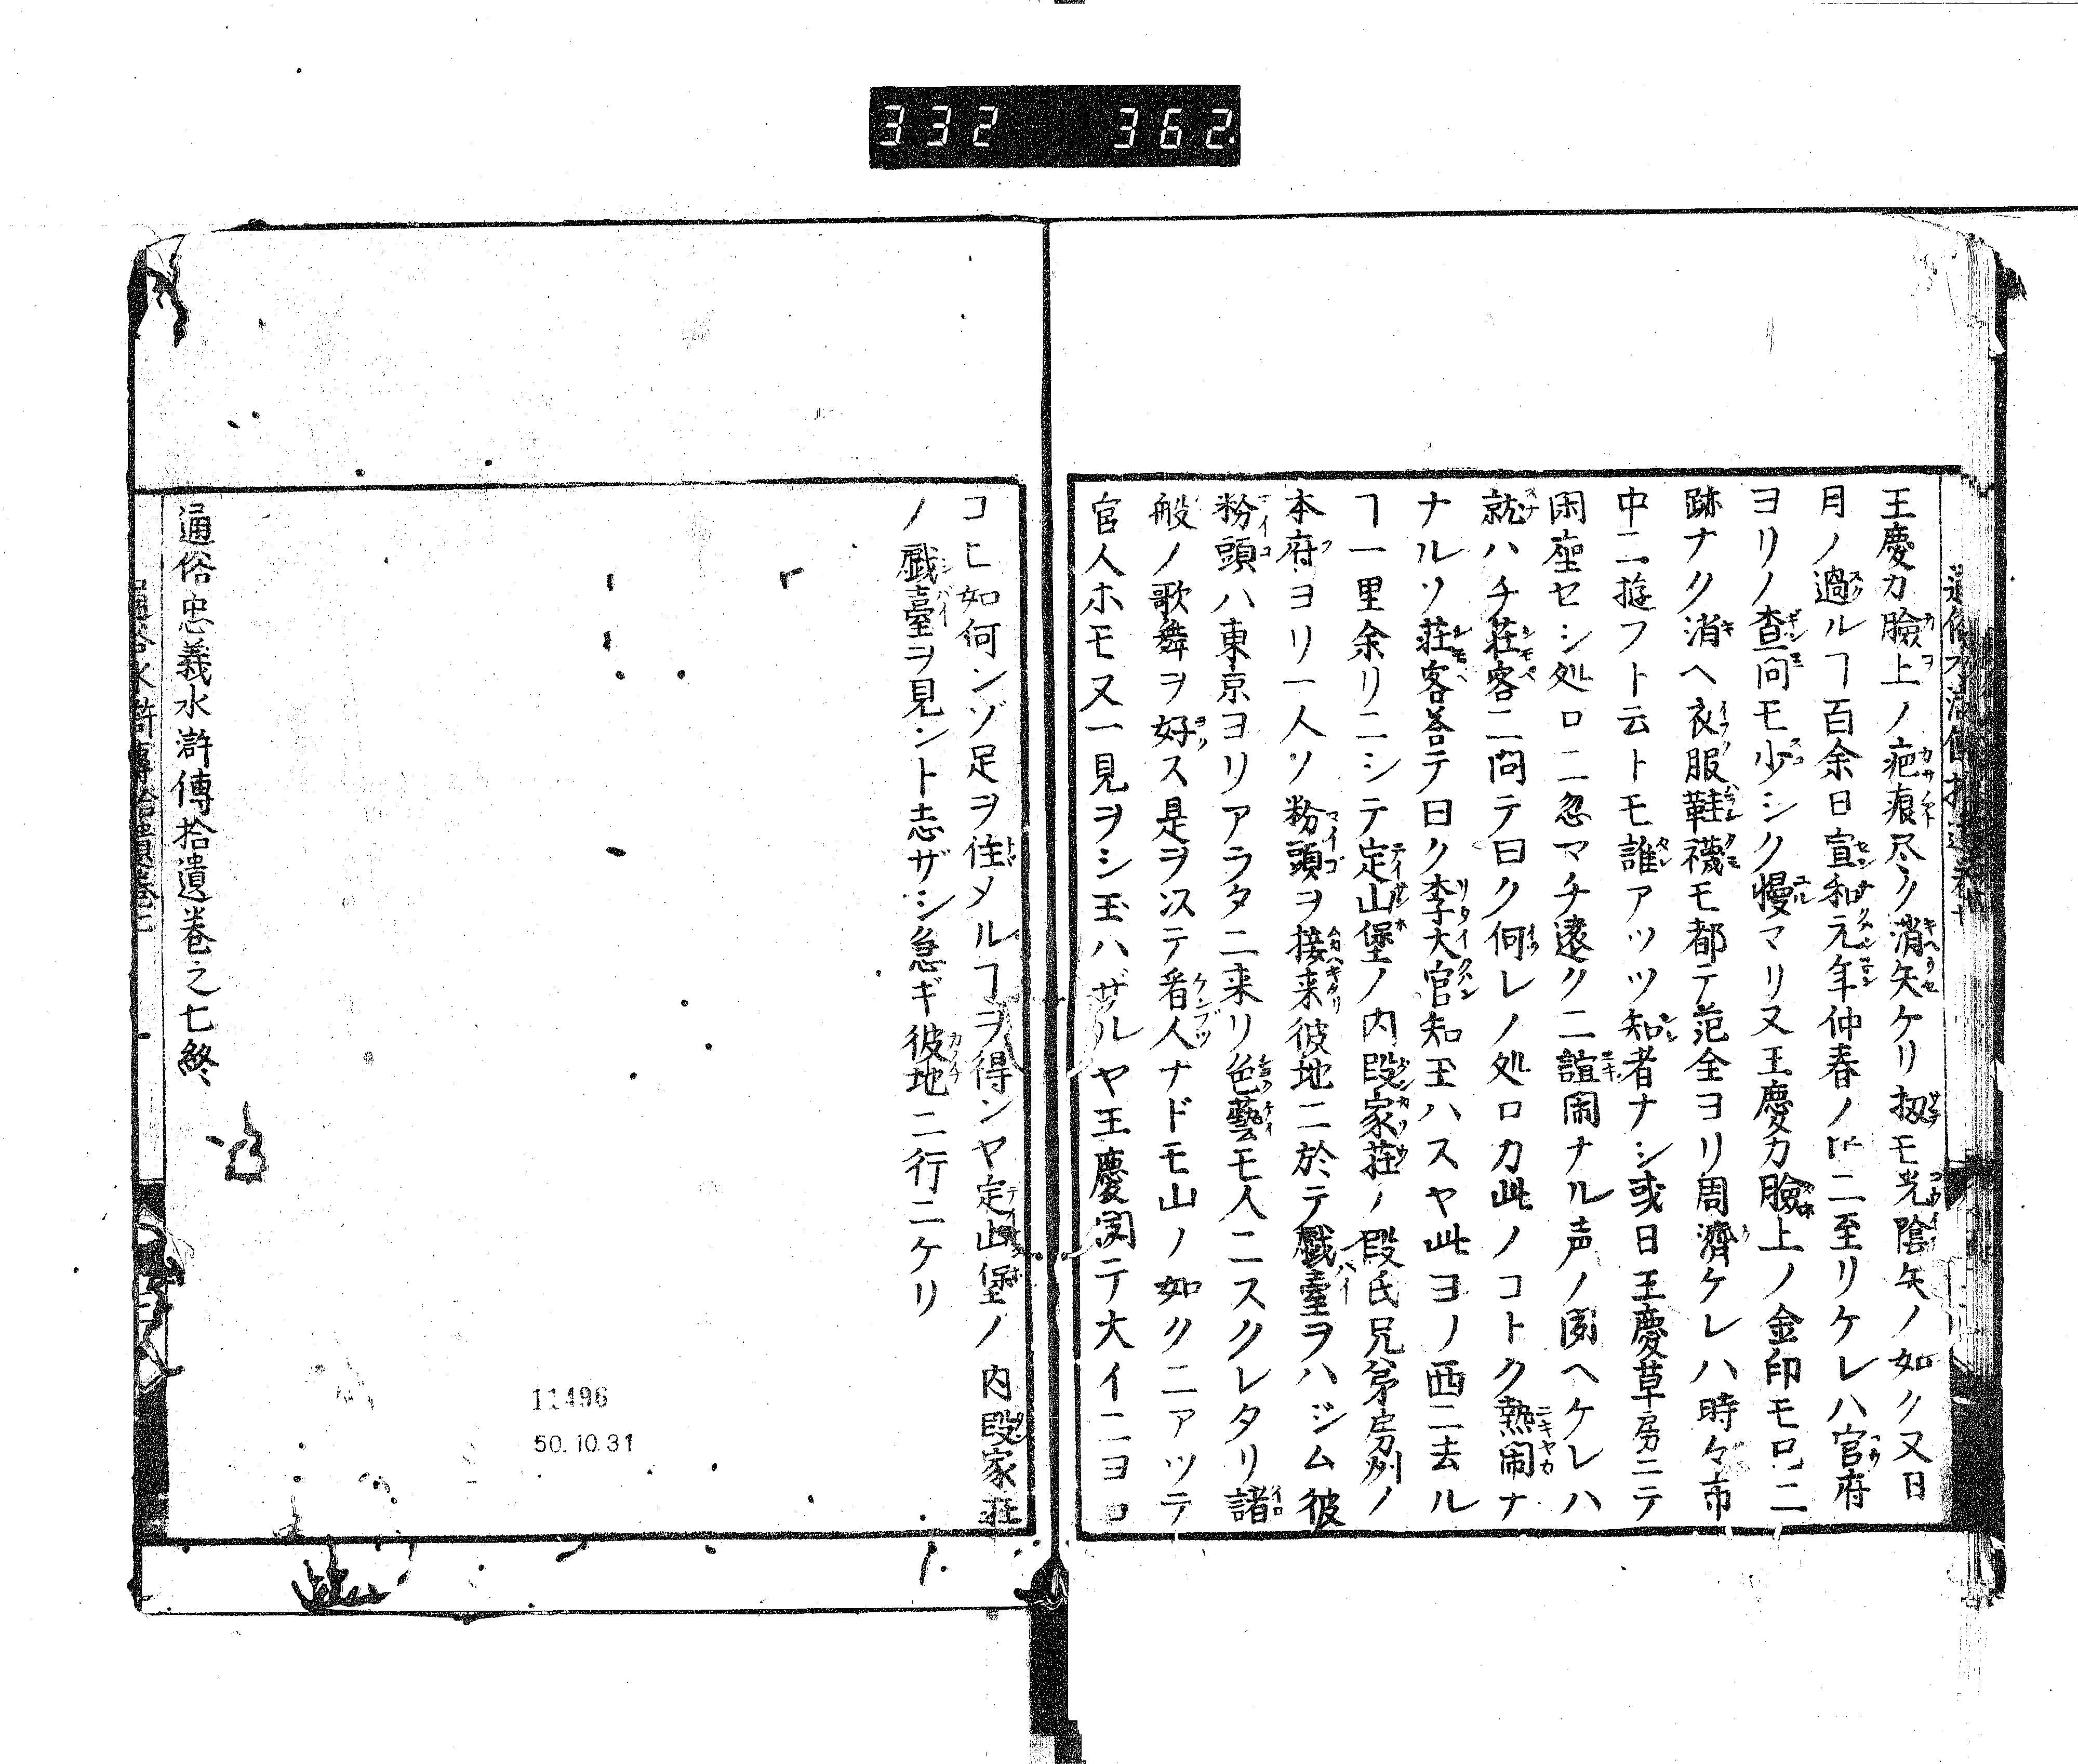 332 362
王慶カ臉上ノ疤痕尽ク消矢ケリ扨モ光陰矢ノ如ク又日
月ノ過ルヿ百余日宣和元年仲春ノ比ニ至リケレハ官府
ヨリノ査問モ少シク慢マリ又王慶カ臉上ノ金印モ已ニ
跡ナク消ヘ衣服鞋襪モ都テ范全ヨリ周濟ケレハ時々市
中ニ遊フト云トモ誰アツツ知者ナシ或日王慶草房ニテ
閑座セシ処ロニ忽マチ遠クニ諠閙ナル声ノ聞ヘケレハ
就ハチ荘客ニ問テ曰ク何レノ処ロカ此ノコトク熱閙ナ
ナルソ荘客荅テ曰ク李大官知玉ハスヤ此ヨノ西ニ去ル
ヿ一里余リニシテ定山堡ノ内段家荘ノ段氏兄弟房州ノ
本府ヨリ一人ソ粉頭ヲ接来彼地ニ於テ戯臺ヲハジム彼
粉頭ハ東京ヨリアラタニ来リ色藝モ人ニスクレタリ諸
般ノ歌舞ヲ好ス是ヲ以テ看人ナドモ山ノ如クニアツテ
官人ホモ又一見ヲシ玉ハザルヤ王慶聞テ大イニヨロ
コヒ如何ンゾ足ヲ住メルヿヲ得ンヤ定山堡ノ内段家荘
ノ戯臺ヲ見ント志ザシ急ギ彼地ニ行ニケリ
通俗忠義水滸傳拾遺巻之七終
11496
50.10.31